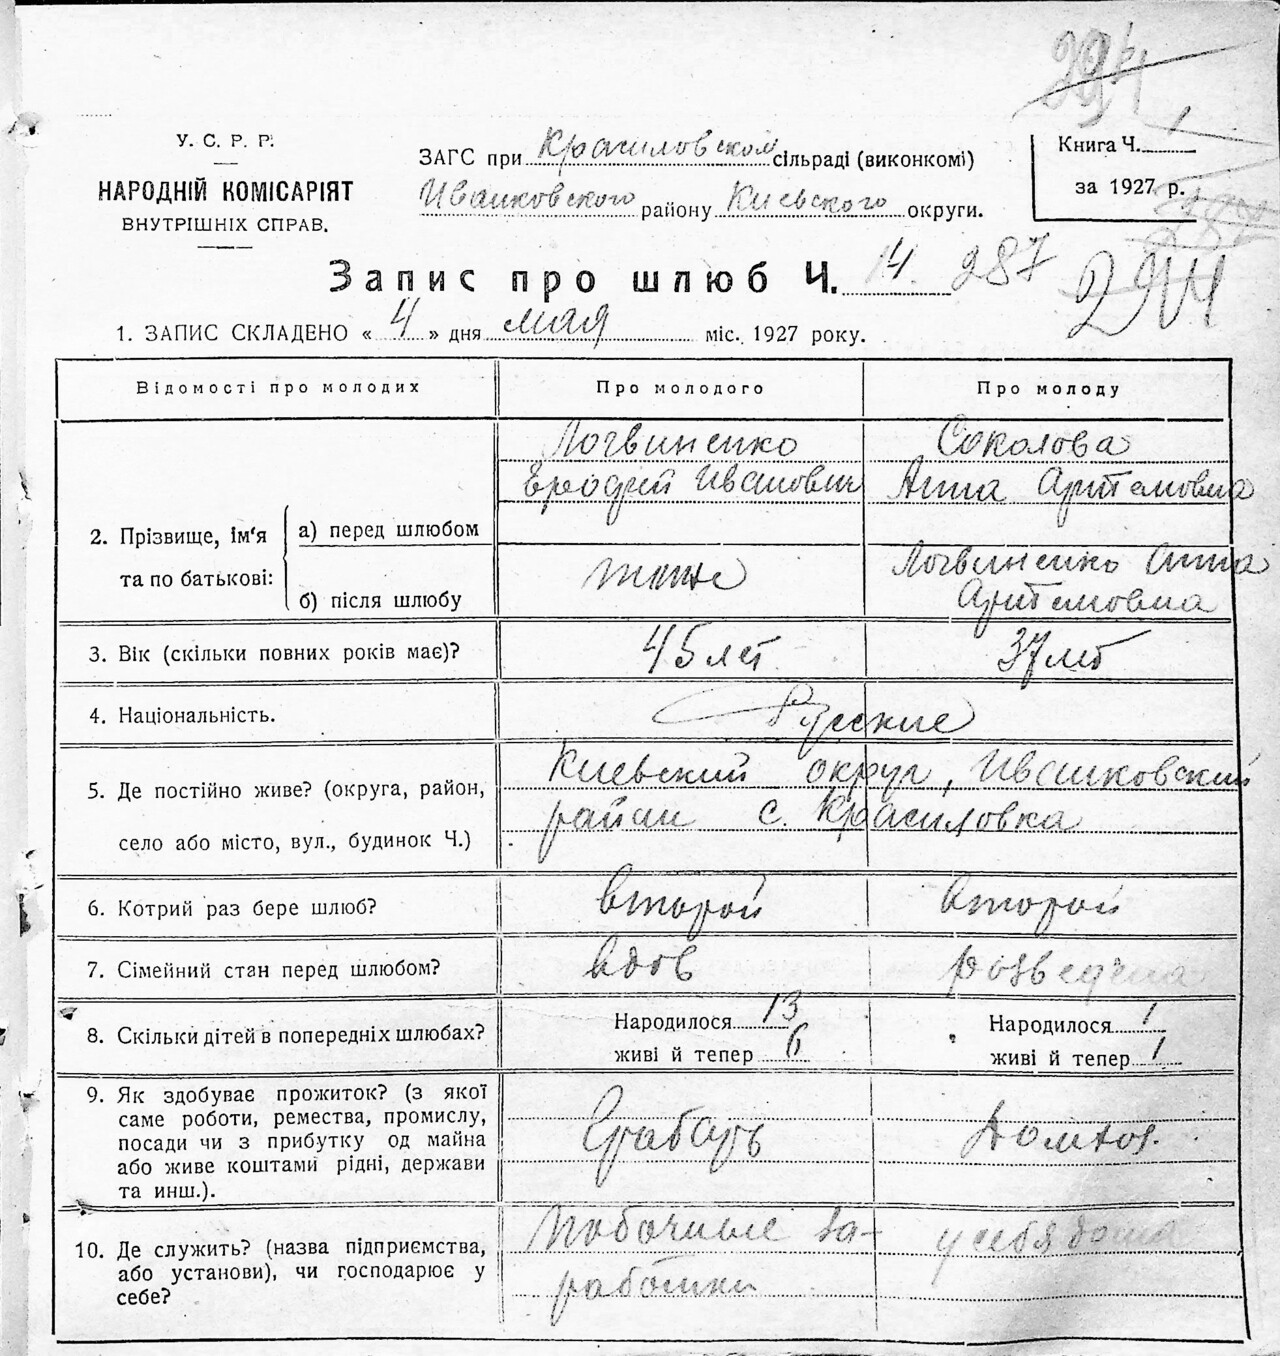 294
У. С. Р. Р.
НАРОДНІЙ КОМІСАРІЯТ
ВНУТРІШНІХ СПРАВ.
ЗАГС при Красиловском сільраді (виконкомі)
Иванковского району Киевского округи.
Книга Ч. 1
за 1927 р.
287
Запис про шлюб Ч. 14. 287
294
1. ЗАПИС СКЛАДЕНО « 4 » дня мая міс. 1927 року.
Відомості про молодих Про молодого Про молоду
Логвиненко Соколова
Иванович Анна Артемовна
2. Прізвище, ім'я та по батькові:
а) перед шлюбом
б) після шлюбу
тоже Логвиненко Анна
Артемовна
3. Вік (скільки повних років має)? 45 лет 37 лет
4. Національність. Русские
5. Де постійно живе? (округа, район,
село або місто, вул., будинок Ч.)
Киевский округ, Иванковский
район с. Красиловка
6. Котрий раз бере шлюб? второй второй
7. Сімейний стан перед шлюбом? вдов розведена
8. Скільки дітей в попередніх шлюбах?
Народилося 13 Народилося 1
живі й тепер 6 живі й тепер 1
9. Як здобуває прожиток? (з якої
саме роботи, ремества, промислу,
посади чи з прибутку од майна
або живе коштами рідні, держави
та инш.).
Грабарь Домхоз.
10. Де служить? (назва підприємства,
або установи), чи господарює у
себе?
Побочные за- у себя дома
работки